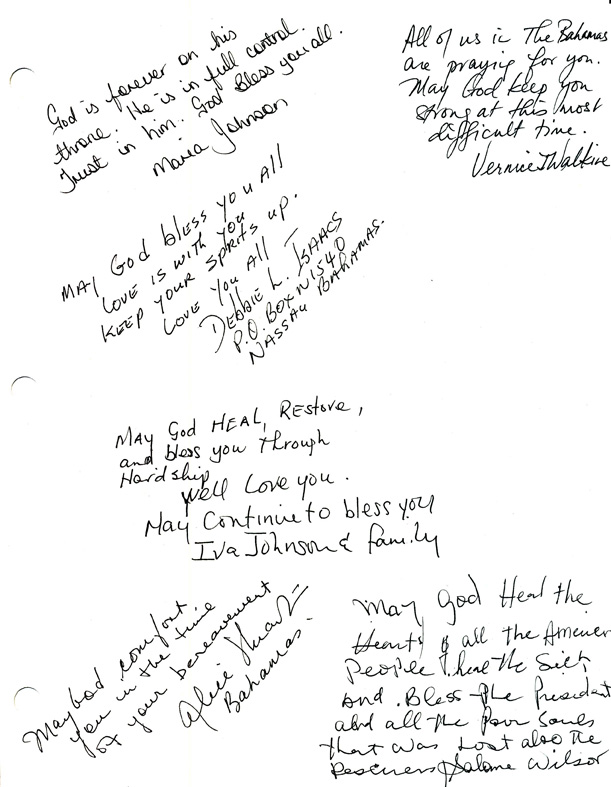 God is forever on his
throne. He is in full control.
Trust in him. God Bless you all.
Maria Johnson
All of us in The Bahamas
are praying for you.
May God keep you
strong at this most
difficult time.
Vernice
MAY God bless you All
LOVE IS WITH YOU
KEEP YOUR SPIRITS UP.
LOVE YOU All
DEbbIE L. ISAACS
P.O. BOX N1540
NASSAU BAHAMAS.
MAY God HEAL, REstore,
and bless you through
Hardship
Well Love you.
May Continue to bless you
Iva Johnson & family
May God comfort
you in the time
of your bereavement
Alice
Bahamas.
May God Heal the
Hearts of all the
People Heal the Sick
and Bless the President
and all the Poor Souls
that was Lost also the
Rescuers Salome Wilson